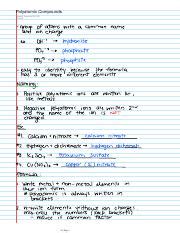 Polyatomic Compounds
- group of atoms with a common name and ion charge
ex. OH⁻¹ → hydroxide
PO₃⁻³ → phosphite
PO₄⁻³ → phosphate
- easy to identify because the formula has 3 or more different elements
Naming:
1 Positive polyatomic ions are written 1st, like metals
2 Negative polyatomic ions are written 2nd and the name is not changed
Ex.
#1 Calcium + nitrate → calcium nitrate
#2 + nitrate →
#3 K₂SO₄ → Potassium Sulfate
#4 → 
Formula
1 Write metal + non-metal elements in their ion form
- polyatomic is always written in brackets
2 re-write elements without ion charges and only the numbers (keep brackets)
- reduce if common factor